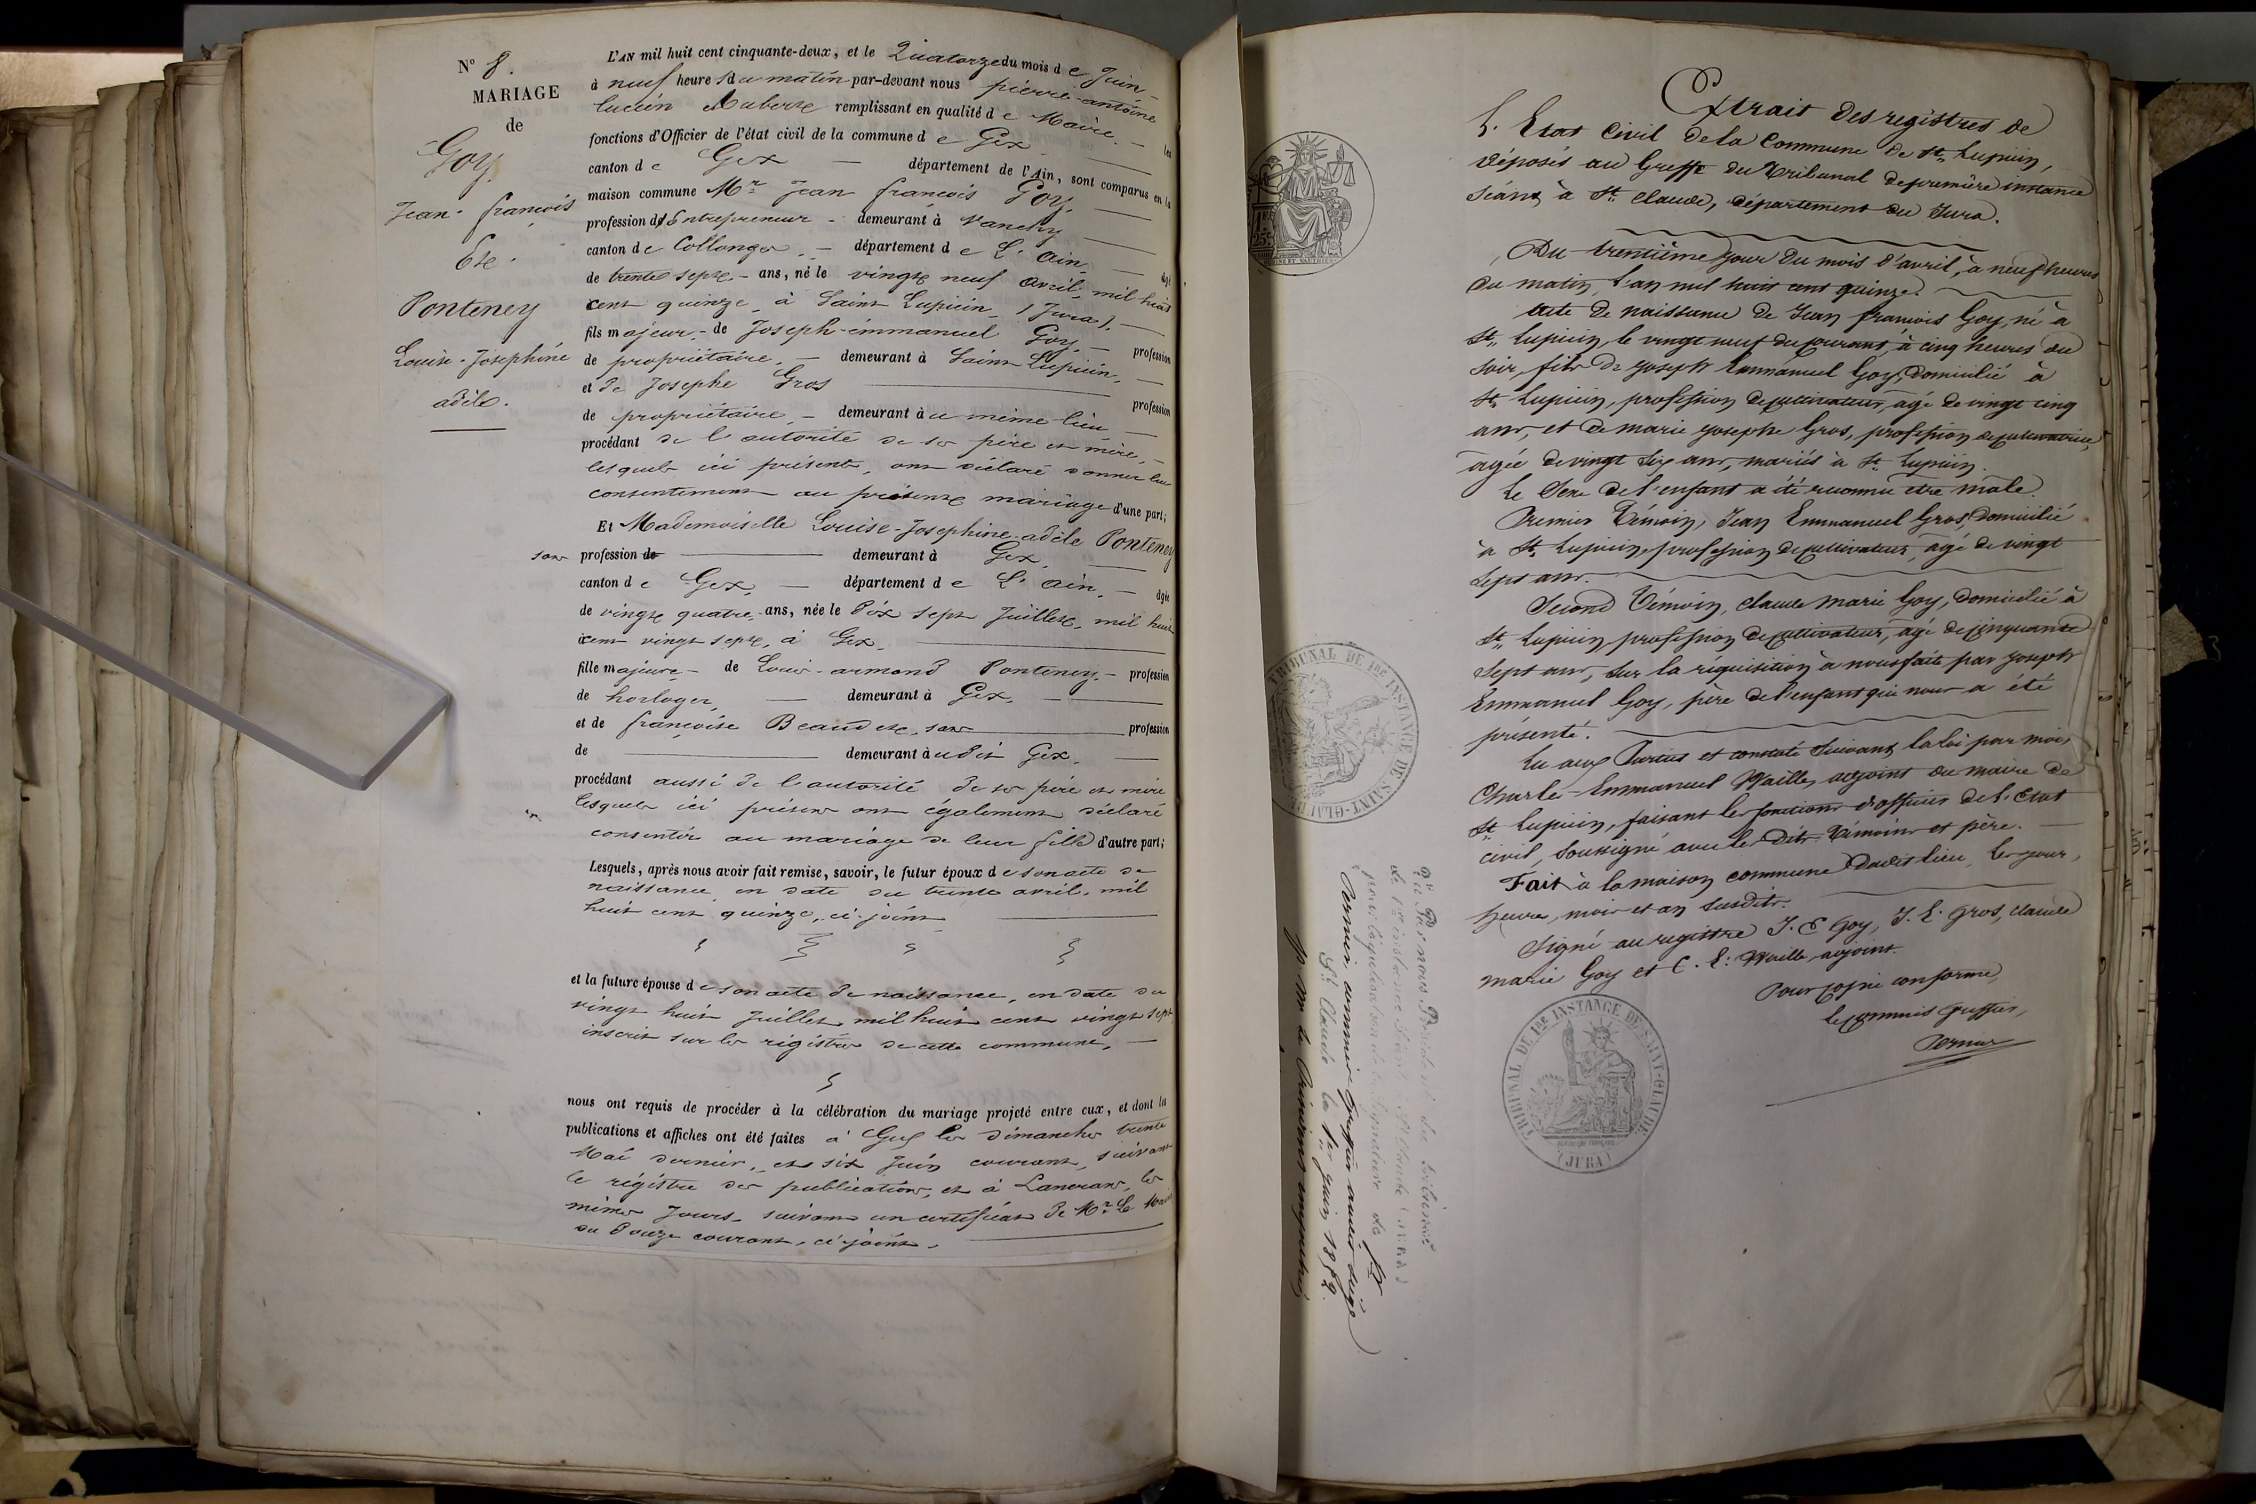 N° 8.
MARIAGE
de
Goy
Jean-françois
Et
Ponteney
Louise-Joséphine
adèle.
L'AN mil huit cent cinquante-deux, et le Quatorze du mois de Juin
à neuf heures du matin par-devant nous pierre-antoine
lucien remplissant en qualité de Maire les
fonctions d'Officier de l'état civil de la commune de Gex
canton de Gex département de l'Ain, sont comparus en la
maison commune Mr Jean françois Goy,
profession d'Entrepreneur demeurant à Vanchy
canton de Collonges département de L'ain âgé
de trente sept ans, né le vingt neuf avril, mil huit
cent quinze à Saint Lupicin (Jura),
fils majeur de Joseph-emmanuel Goy, profession
de propriétaire, demeurant à Saint Lupicin,
et de Josephe Gros profession
de propriétaire, demeurant au même lieu
procédant de l'autorité de ses père et mère,
lesquels ici présents, ont déclaré donner leur
consentement au présent mariage d'une part;
Et Mademoiselle Louise-Josephine adèle Ponteney
sans profession de demeurant à Gex,
canton de Gex, département de L'ain, âgée
de vingt quatre ans, née le dix sept Juillet, mil huit
cent vingt sept, à Gex,
fille majeure de Louis-armand Ponteney, profession
de horloger, demeurant à Gex,
et de françoise Beaudet, sans profession
de demeurant audit Gex,
procédant aussi de l'autorité de ses père et mère
lesquels ici présens ont également déclaré
consentir au mariage de leur fille d'autre part;
Lesquels, après nous avoir fait remise, savoir, le futur époux de son acte de
naissance en date du trente avril, mil
huit cent quinze, ci-joint
et la future épouse de son acte de naissance, en date du
vingt huit Juillet mil huit cent vingt sept
inscrit sur les régistres de cette commune,
nous ont requis de procéder à la célébration du mariage projeté entre eux, et dont les
publications et affiches ont été faites à Gex les dimanches trente
Mai dernier, et six Juin courant, suivant
le régistre des publications, et à Lancrans, les
mêmes Jours, suivant un certificat de Mr Le Maire
du Douze courant, ci-joint,
Extrait des registres de
L'Etat Civil de la Commune de St Lupicin,
déposés au Greffe du Tribunal de première instance
séant à St Claude, département du Jura.
Du trentième jour du mois d'avril, à neuf heures
du matin, l'an mil huit cent quinze.
acte de naissance de Jean françois Goy, né à
St Lupicin, le vingt neuf du courant, à cinq heures du
soir, fils de Joseph Emmanuel Goy, domicilié à
St Lupicin, profession de cultivateur, âgé de vingt cinq
ans, et de marie Josephe Gros, profession de cultivatrice,
âgée de vingt six ans, mariés à St Lupicin.
Le Sexe de l'enfant a été reconnu être mâle.
Premier Témoin, Jean Emmanuel Gros, domicilié
à St Lupicin, profession de cultivateur, âgé de vingt
sept ans.
Second Témoin, claude marie Goy, domicilié à
St Lupicin profession de cultivateur, âgé de cinquante
sept ans, sur la réquisition à nous faite par Joseph
Emmanuel Goy, père de l'enfant qui nous a été
présenté.
Lu aux Parties et constaté suivant la loi par moi,
Charle-Emmanuel Waille, adjoint du maire de
St Lupicin, faisant les fonctions d'officier de l'état
civil, soussigné avec les dits Témoins et père.
Fait à la maison commune dudit lieu, les jour,
heure, mois et an susdits.
Signé au registre J. E Goy, J. E. Gros, claude
marie Goy et C. E. Waille, adjoint.
Pour copie conforme,
le commis Greffier,
TRIBUNAL DE 1RE INSTANCE DE SAINT-CLAUDE
TRIBUNAL DE 1RE INSTANCE DE SAINT-CLAUDE
(JURA)
Vu Par nous Président du tribunal
de 1re instance séant St Claude (JURA)
pour légalisation de la signature de Mr
commis Greffier
St Claude le 1er juin 1852.